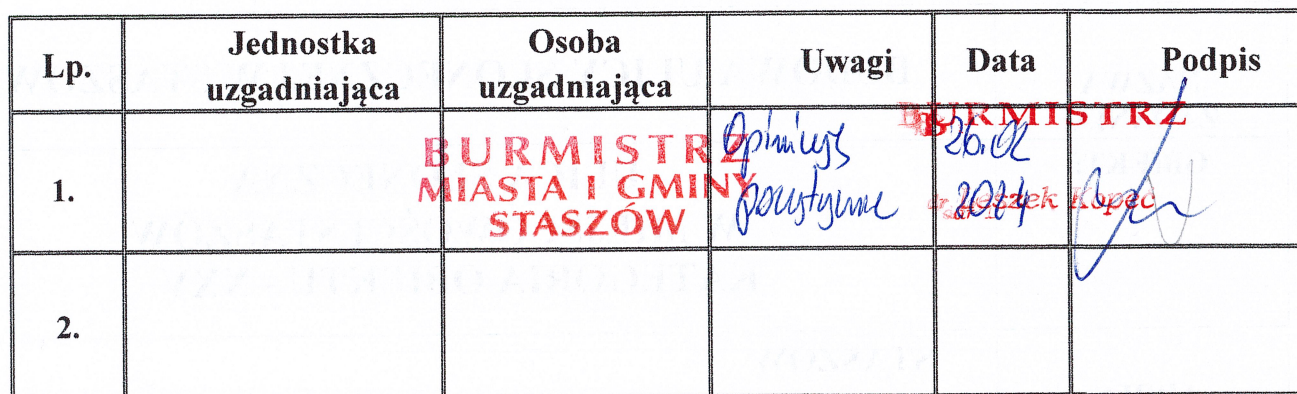 Lp.
Jednostka
uzgadniająca
Osoba
uzgadniająca
Uwagi
Data
Podpis
1.
BURMISTRZ
MIASTA I GMINY
STASZÓW
Opiniuję
pozytywnie
26.02
2014
BURMISTRZ
Leszek Kopeć
2.